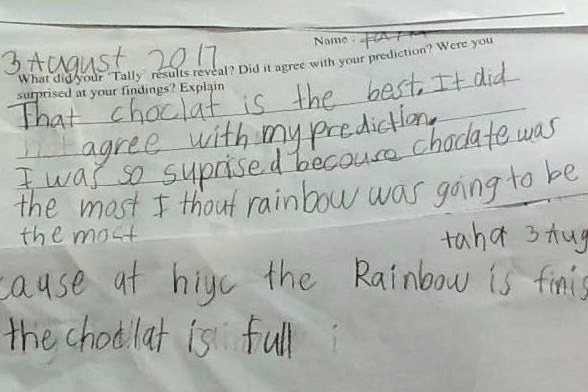 Name :
3 August 2017
What did your 'Tally' results reveal? Did it agree with your prediction? Were you
surprised at your findings? Explain
That choclat is the best. It did
agree with my prediction.
I was so suprised becouse choclate was
the most I thout rainbow was going to be
the most
taha 3 Aug
cause at hiyc the Rainbow is finis
the choclat is full